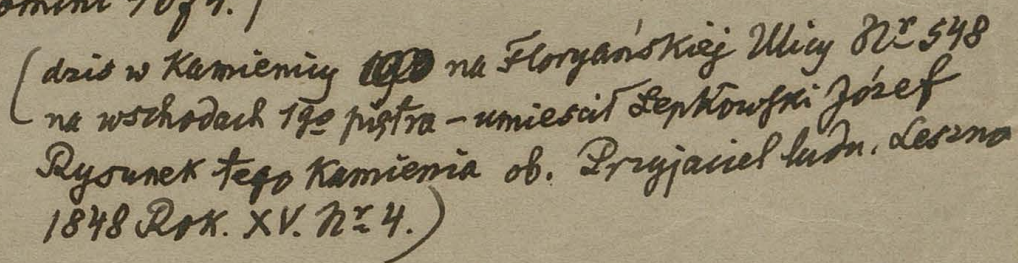 (dziś w Kamienicy na Floryańskiej Ulicy Nr 548
na wschodach 1go piętra – umieścił Łepkowski Józef
Rysunek tego Kamienia ob. Przyjaciel ludu. Leszno
1848 Rok. XV. Nr 4.)